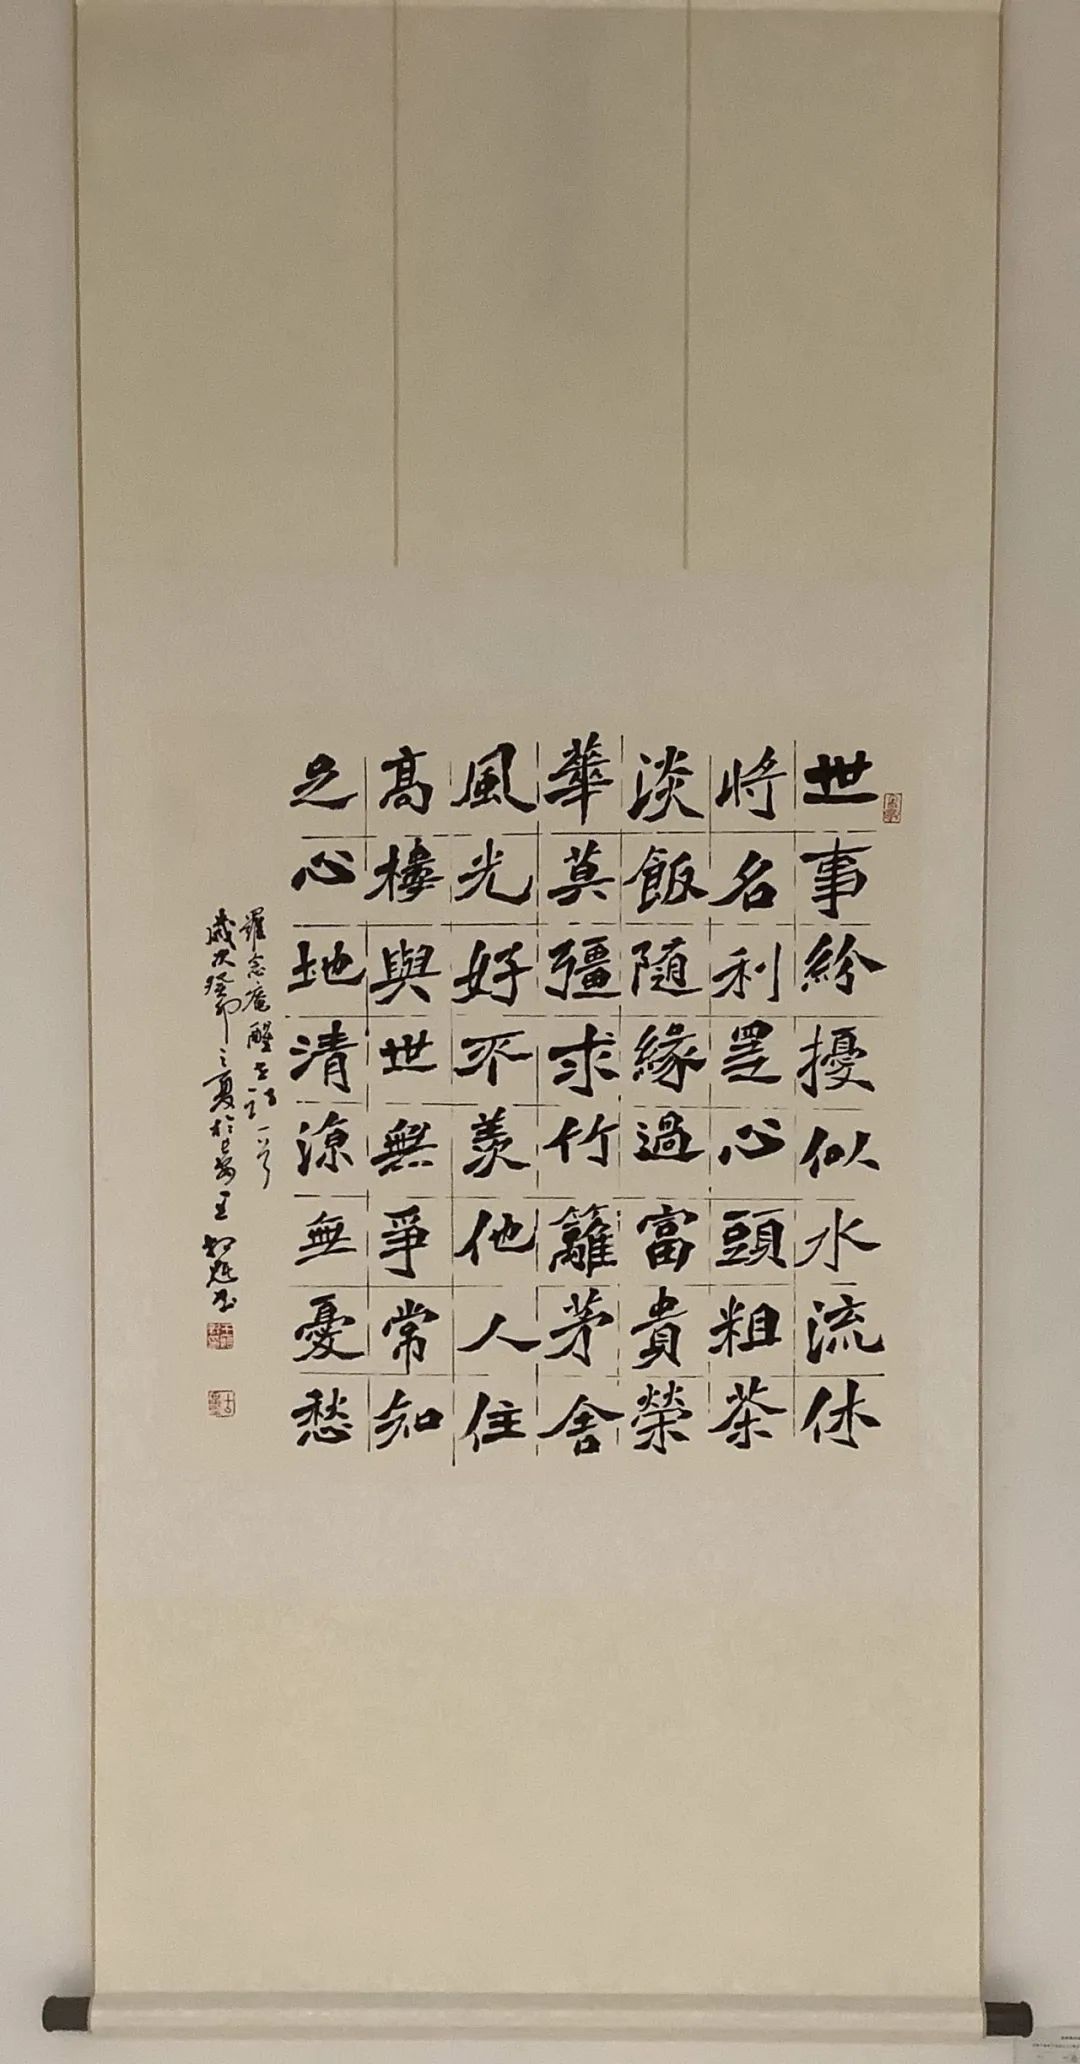 世事紛擾似水流休
將名利罣心頭粗茶
淡飯随緣過富貴榮
華莫彊求竹籬茅舍
風光好不羨他人住
高樓與世無爭常知
之心地清涼無憂愁
羅念庵醒世詩一首
歲次癸卯之夏於長安王